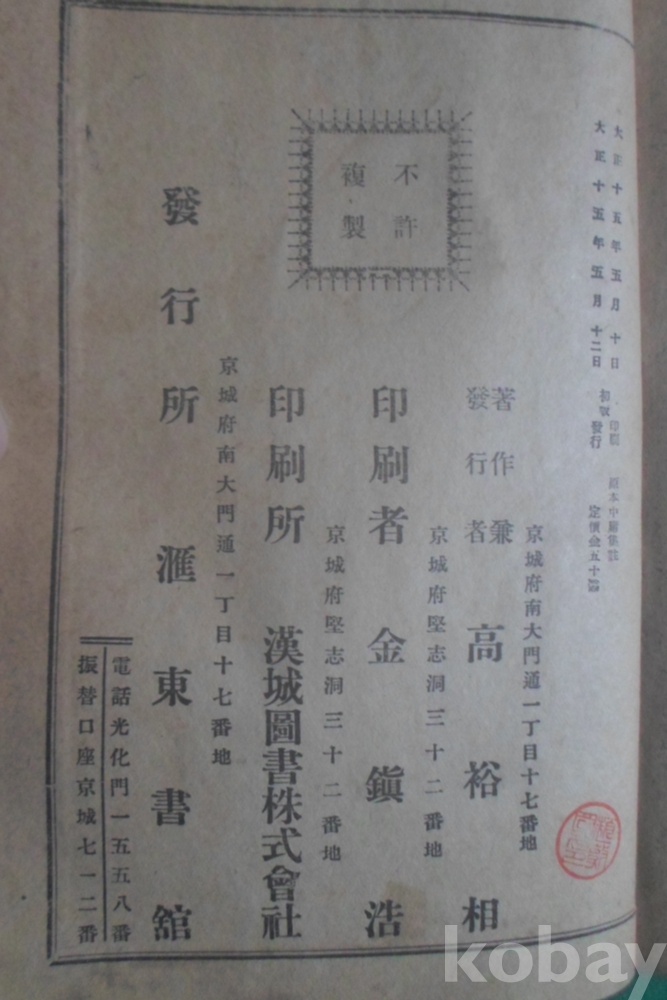 大正十五年五月十日 印刷
大正十五年五月十二日 初版發行
定價金五十錢
不許
複製
京城府南大門通一丁目十七番地
著作兼
發行者 高裕相
京城府堅志洞三十二番地
印刷者 金鎭浩
京城府堅志洞三十二番地
印刷所 漢城圖書株式會社
京城府南大門通一丁目十七番地
發行所 滙東書舘
電話光化門一五五八番
振替口座京城七一二番
kobay